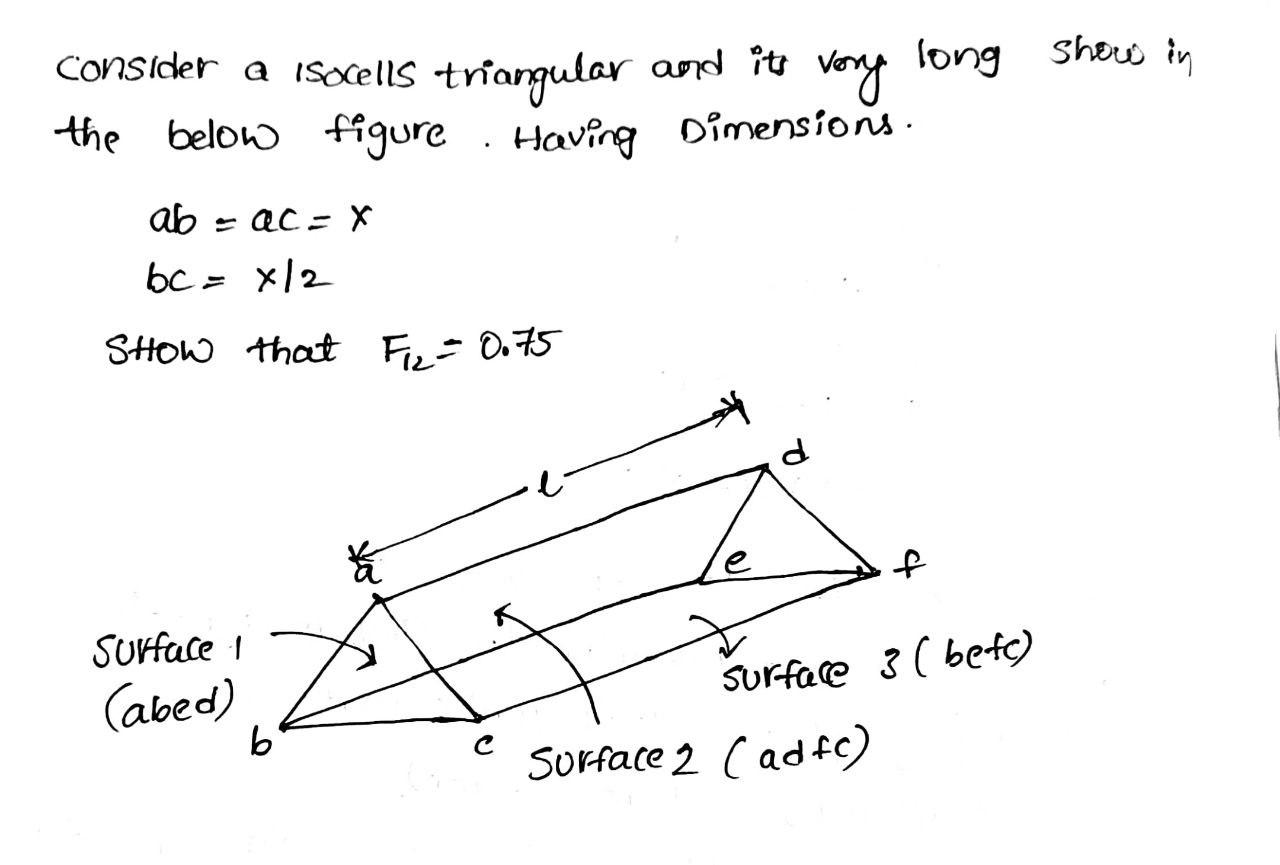 Consider a isocells triangular and its very long show in
the below figure. Having Dimensions.
ab = ac = x
bc = x/2
SHOW that F12 = 0.75
l
d
a
e
f
Surface 1
(abed)
surface 3 (befc)
b
c
Surface 2 (adfc)